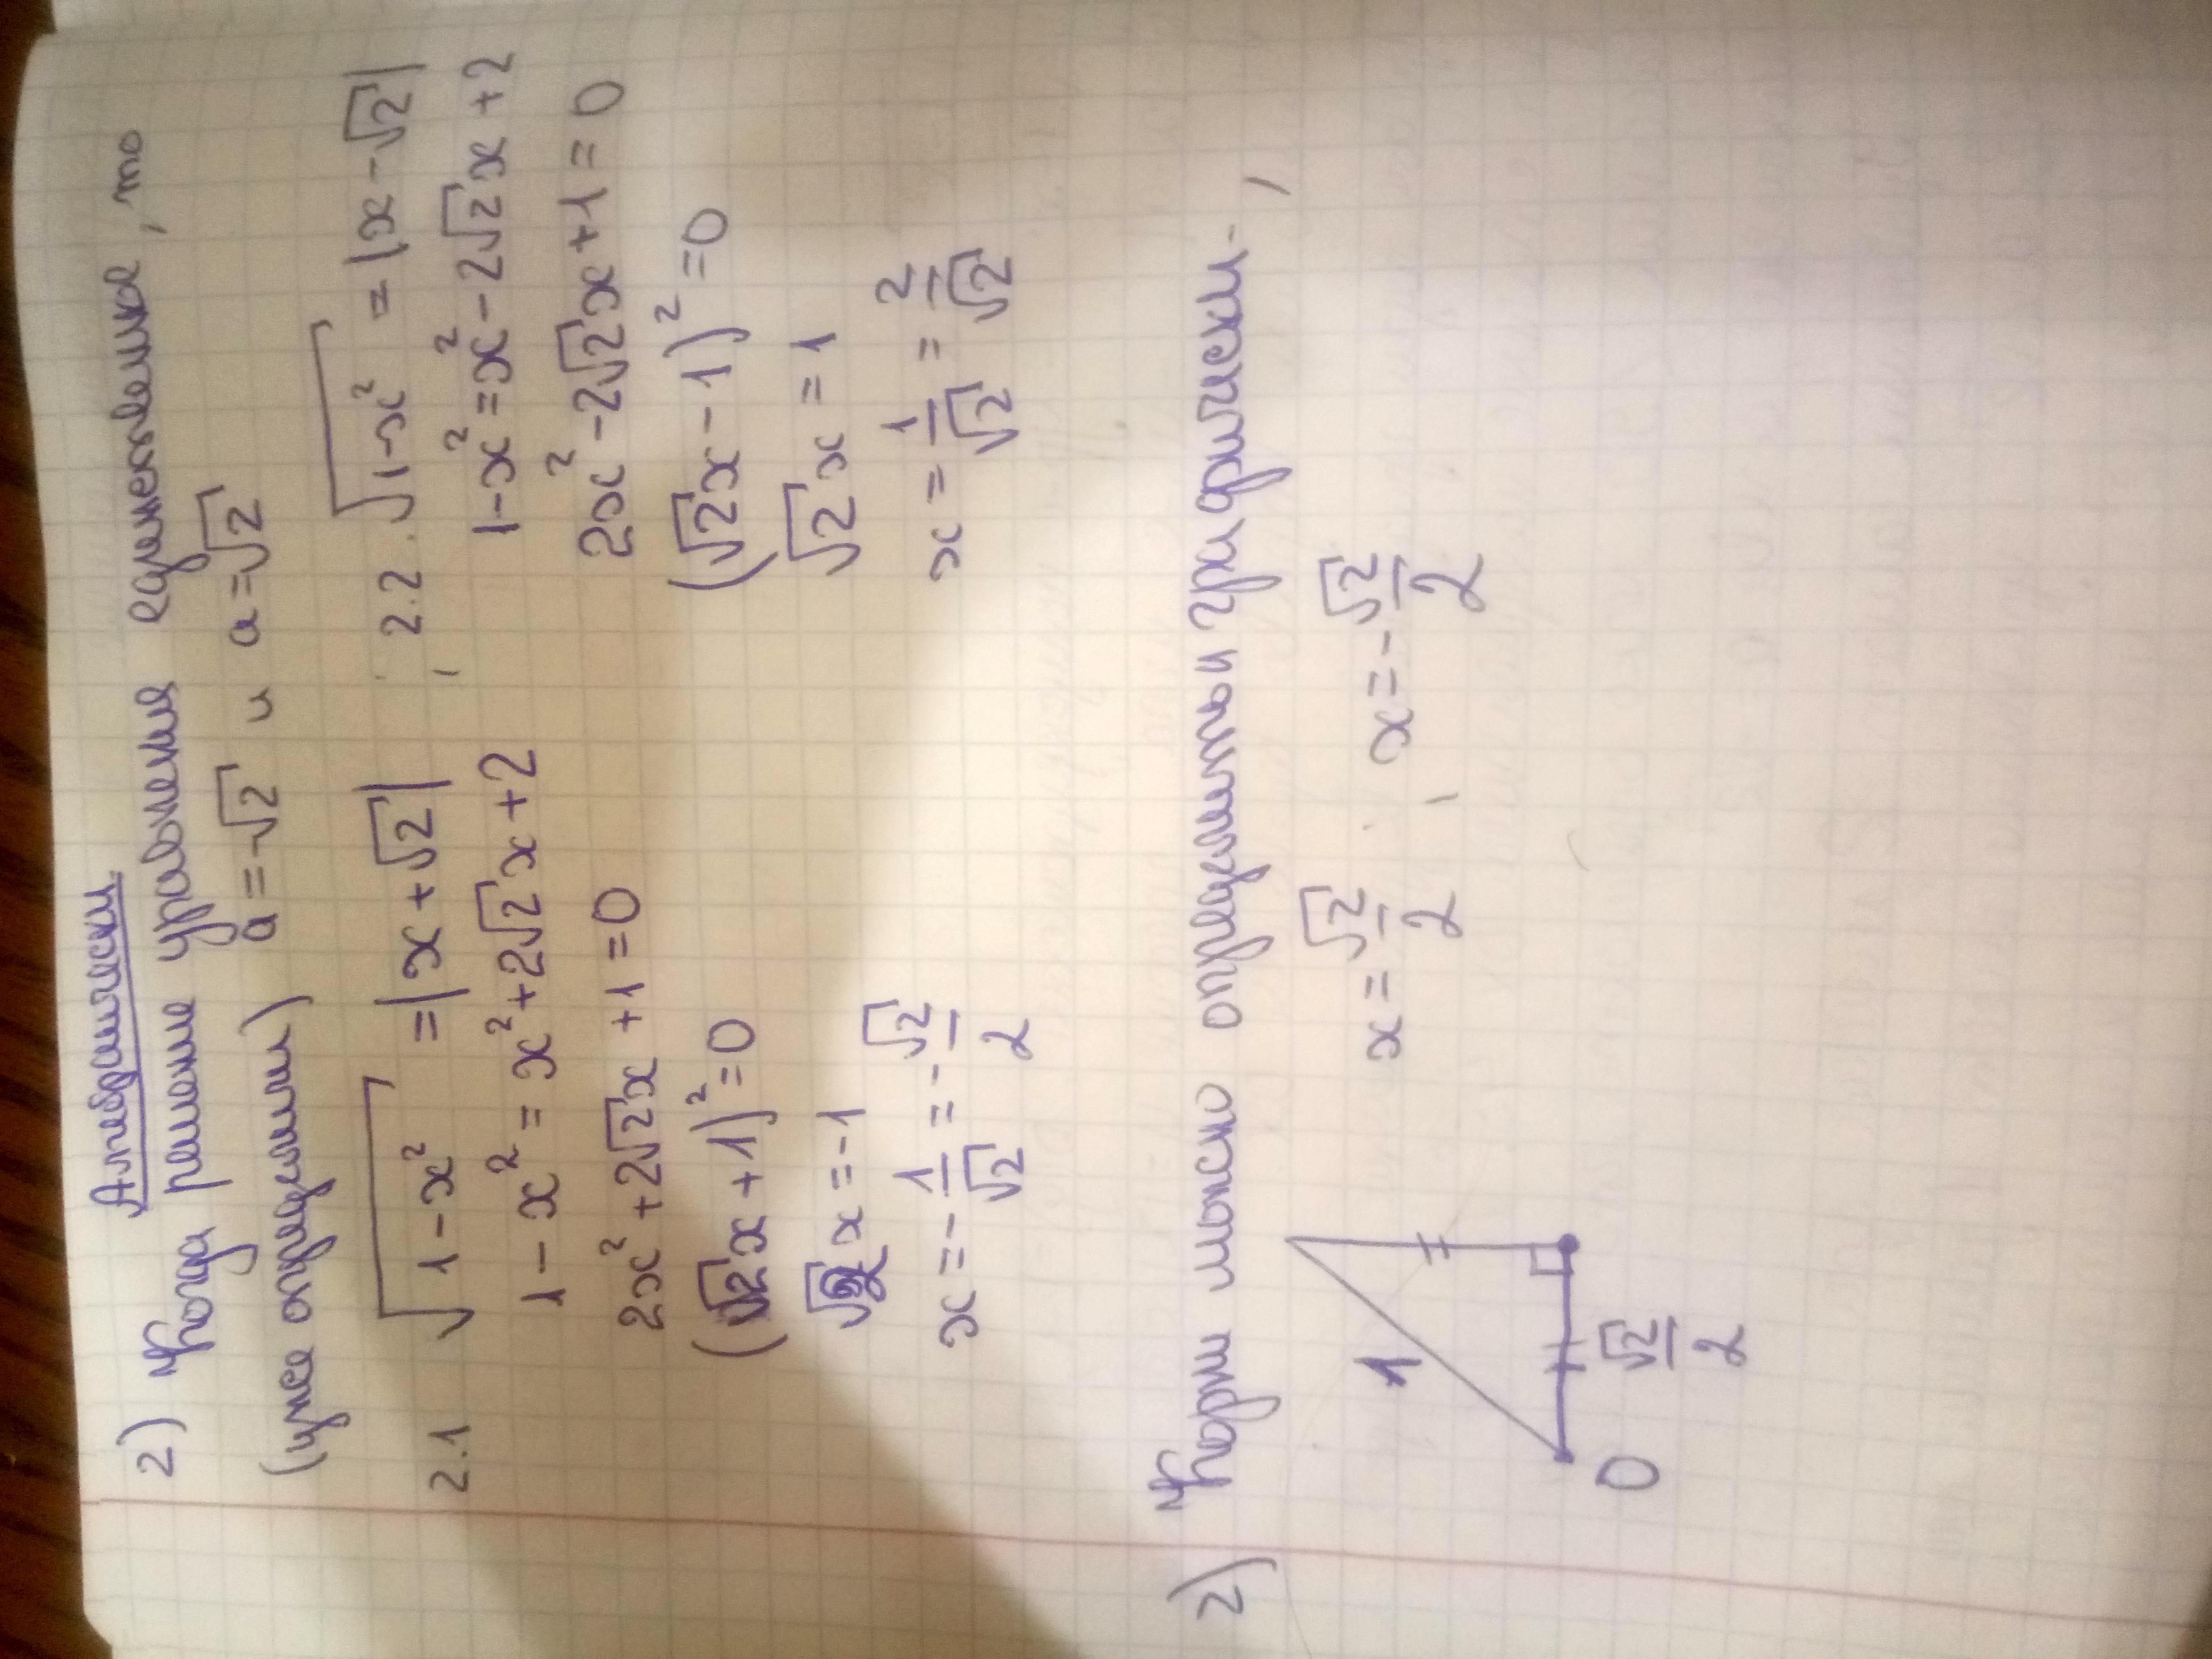 Алгебраически.
2) Когда решение уравнения единственное, то
(уже определили) a=-√2 и a=√2
2.1 √(1-x²) = |x+√2| , 2.2. √(1-x²) = |x-√2|
1-x² = x²+2√2x+2 1-x²=x²-2√2x+2
2x²+2√2x+1=0 2x²-2√2x+1=0
(√2x+1)²=0 (√2x-1)²=0
√2x=-1 √2x=1
x=-1/√2=-√2/2 x=1/√2=2/√2
2) Корни можно определить и графически.
1 x=√2/2 , x=-√2/2
0 √2/2